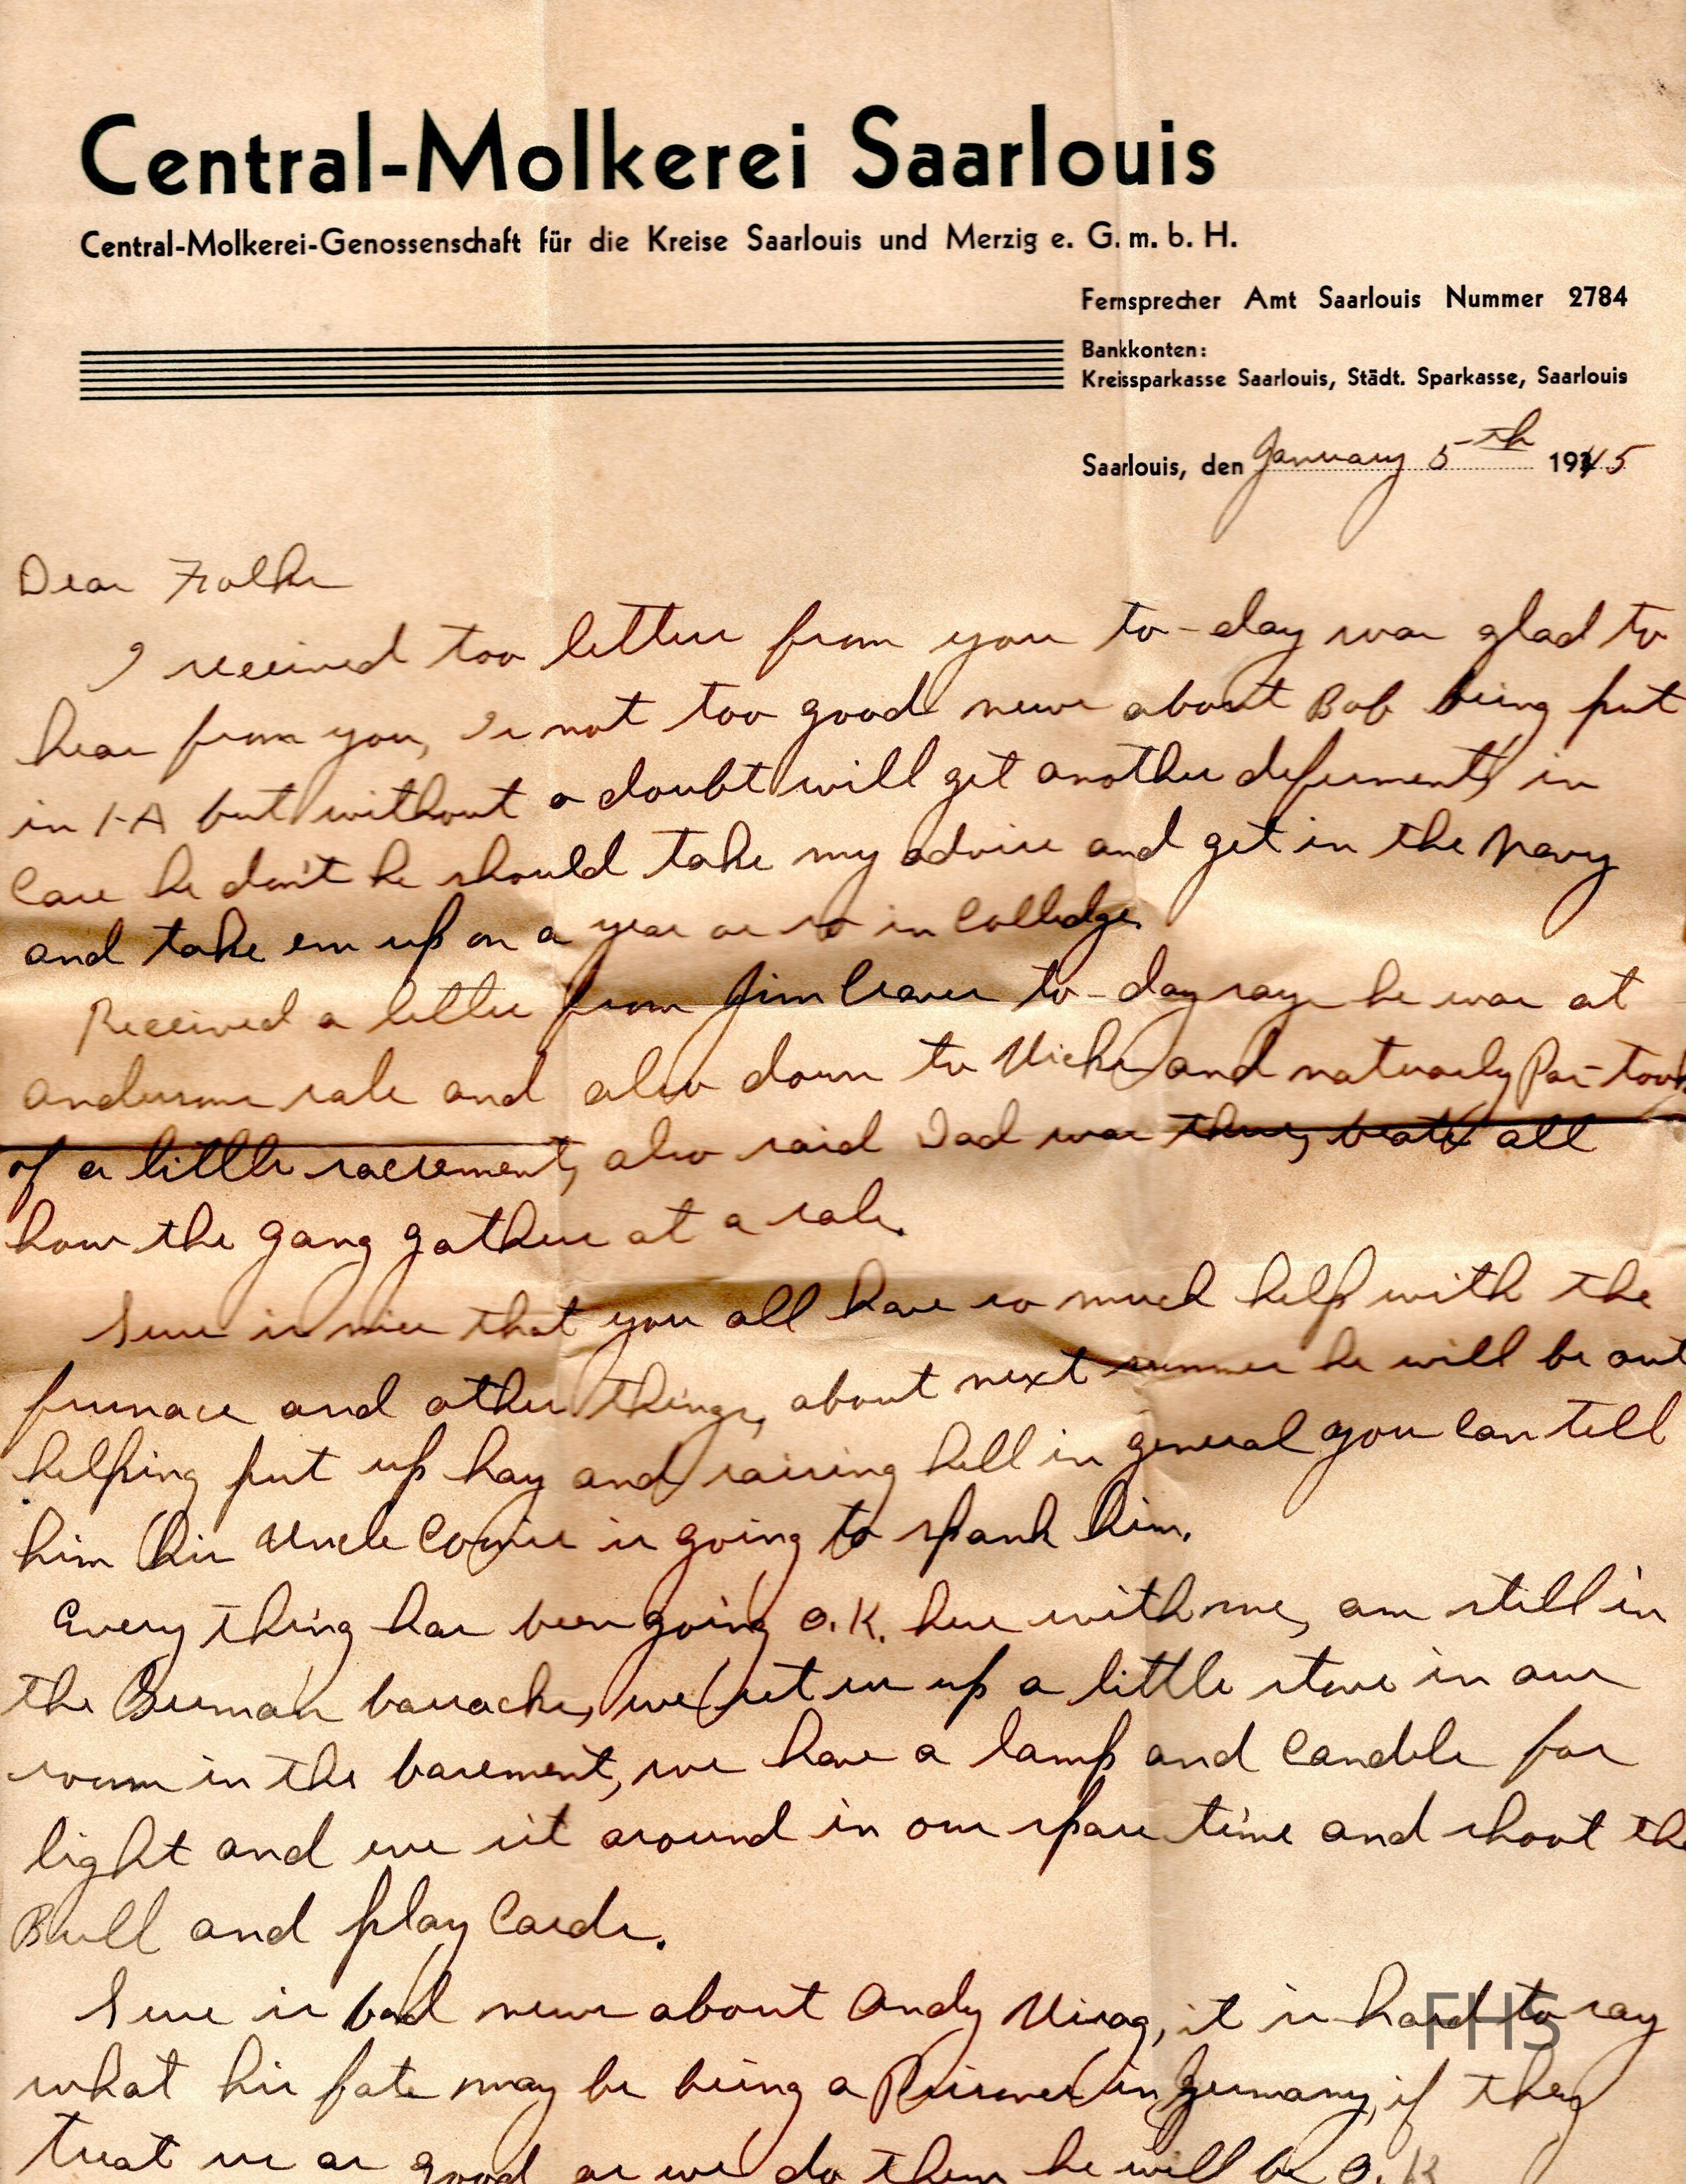 Central-Molkerei Saarlouis
Central-Molkerei-Genossenschaft für die Kreise Saarlouis und Merzig e. G. m. b. H.
Fernsprecher Amt Saarlouis Nummer 2784
Bankkonten:
Kreissparkasse Saarlouis, Städt. Sparkasse, Saarlouis
Saarlouis, den January 5th 1945
Dear Folks
I received too letters from you to-day was glad to
hear from you, Is not too good news about Bob being put
in 1-A but without a doubt will get another deferment, in
Case he don't he should take my advise and get in the Navy
and take em up on a year or so in Colledge.
Received a letter from Jim to-day says he was at
andersons sale and also down to Vicks and naturaly Par-took
of a little sacrement, also said Dad was there, beats all
how the gang gathers at a sale.
Sure is nice that you all have so much help with the
furnace and other things, about next summer he will be out
helping put up hay and raising hell in general you can tell
him his Uncle is going to spank him.
Every thing has been going O.K. here with me, am still in
the German barracks, we set us up a little stove in our
room in the basement, we have a lamp and Candels for
light and we sit around in our spare time and shoot the
Bull and play Cards.
Sure is bad news about Andy Virag, it is hard to say
what his fate may be being a Prisoner in Germany, if they
treat us as good as we do them he will be O.K
FHS